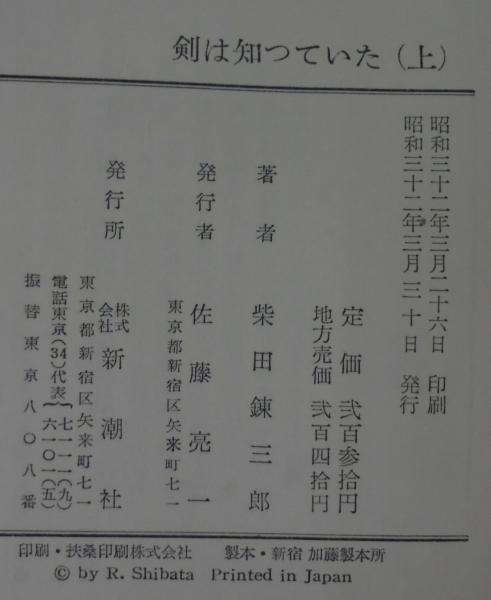 剣は知つていた（上）
昭和三十二年三月二十六日 印刷
昭和三十二年三月三十日 発行
定価 弐百参拾円
地方売価 弐百四拾円
著者 柴田錬三郎
発行者 佐藤亮一
東京都新宿区矢来町七一
発行所 株式会社 新潮社
東京都新宿区矢来町七一
電話東京(34)代表{七一一一(九)
六一〇一(五)}
振替東京八〇八番
印刷・扶桑印刷株式会社 製本・新宿 加藤製本所
© by R. Shibata Printed in Japan